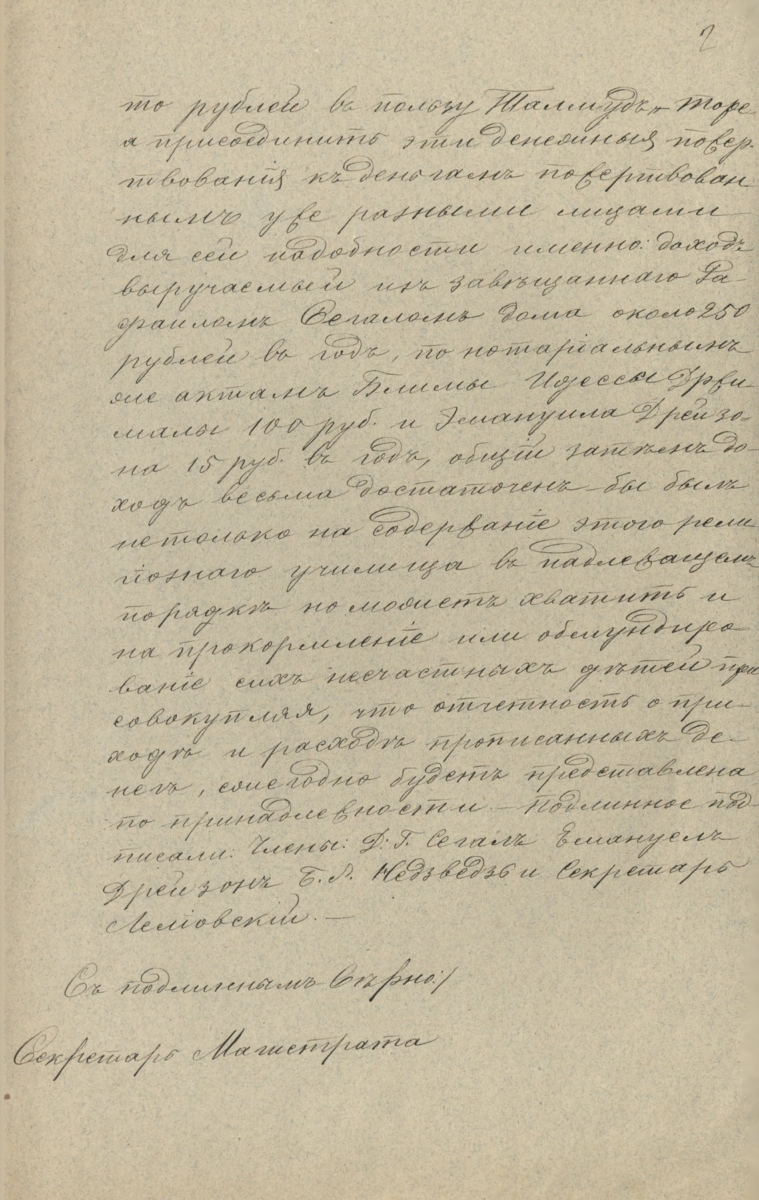 2
то рублей въ пользу Талмудъ-торе
а присоединить эти денежныя пожер-
твованія къ деньгамъ пожертвован-
нымъ уже разными лицами
для сей надобности именно: доходъ
выручаемый изъ завѣщаннаго Ра-
фаиломъ Сегаломъ дома около 250
рублей въ годъ, по нотаріальнымъ
же актамъ Блимы Идессы
малы 100 руб. и Эмануила Дрейзо-
на 15 руб. въ годъ, общій затѣмъ до-
ходъ весьма достаточенъ-бы былъ
нетолько на содержаніе этого рели
гіознаго училища въ надлежащемъ
порядкѣ но можетъ хватить и
на прокормленіе или обмундиро-
ваніе сихъ несчастныхъ дѣтей при
совокупляя, что отчетность о при-
ходѣ и расходѣ прописанныхъ де-
негъ, ежегодно будетъ представлена
по принадлежности – Подлинное под-
писали: Члены: Д: Г. Сегалъ Емануелъ
Дрейзонъ Б. Л. Недзведзь и Секретарь
Съ подлиннымъ вѣрно:/
Секретарь Магистрата